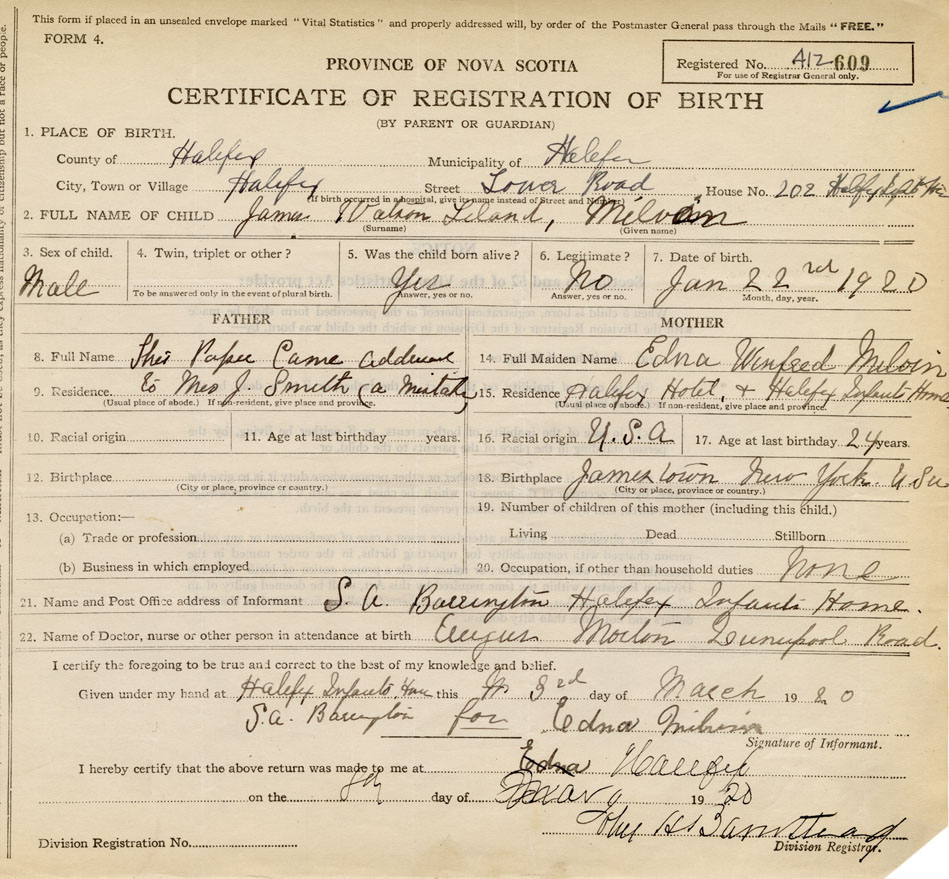 This form if placed in an unsealed envelope marked "Vital Statistics" and properly addressed will, by order of the Postmaster General pass through the Mails "FREE."
FORM 4.
Registered No. 412 609
For use of Registrar General only.
PROVINCE OF NOVA SCOTIA
CERTIFICATE OF REGISTRATION OF BIRTH
(BY PARENT OR GUARDIAN)
1. PLACE OF BIRTH.
County of Halifax Municipality of Halifax
City, Town or Village Halifax Street Tower Road House No. 202 Halifax
(If birth occurred in a hospital, give its name instead of Street and Number)
2. FULL NAME OF CHILD James Watson Leland, Milvain
(Surname) (Given name)
3. Sex of child. 4. Twin, triplet or other? 5. Was the child born alive? 6. Legitimate? 7. Date of birth.
Male Yes No Jan 22nd 1920
To be answered only in the event of plural birth. Answer, yes or no. Answer, yes or no. Month, day, year.
FATHER MOTHER
8. Full Name This Paper Came addressed 14. Full Maiden Name Edna Winfred Milvin
9. Residence to Mrs J. Smith (a mistake) 15. Residence Halifax Hotel, + Halifax Infants Home
(Usual place of abode.) If non-resident, give place and province. (Usual place of abode.) If non-resident, give place and province.
10. Racial origin 11. Age at last birthday years. 16. Racial origin U.S.A 17. Age at last birthday 24 years.
12. Birthplace 18. Birthplace Jamestown New York. U.S.
(City or place, province or country.) (City or place, province or country.)
13. Occupation:— 19. Number of children of this mother (including this child.)
(a) Trade or profession Living Dead Stillborn
(b) Business in which employed 20. Occupation, if other than household duties none
21. Name and Post Office address of Informant S. A. Barrington Halifax Infants Home.
22. Name of Doctor, nurse or other person in attendance at birth Road.
I certify the foregoing to be true and correct to the best of my knowledge and belief.
Given under my hand at Halifax Infants Home this 3rd day of March 1920
S. A. Barrington for Edna Milvin
Signature of Informant.
I hereby certify that the above return was made to me at Edna Halifax
on the day of 1920
Division Registration No. Division Registrar.